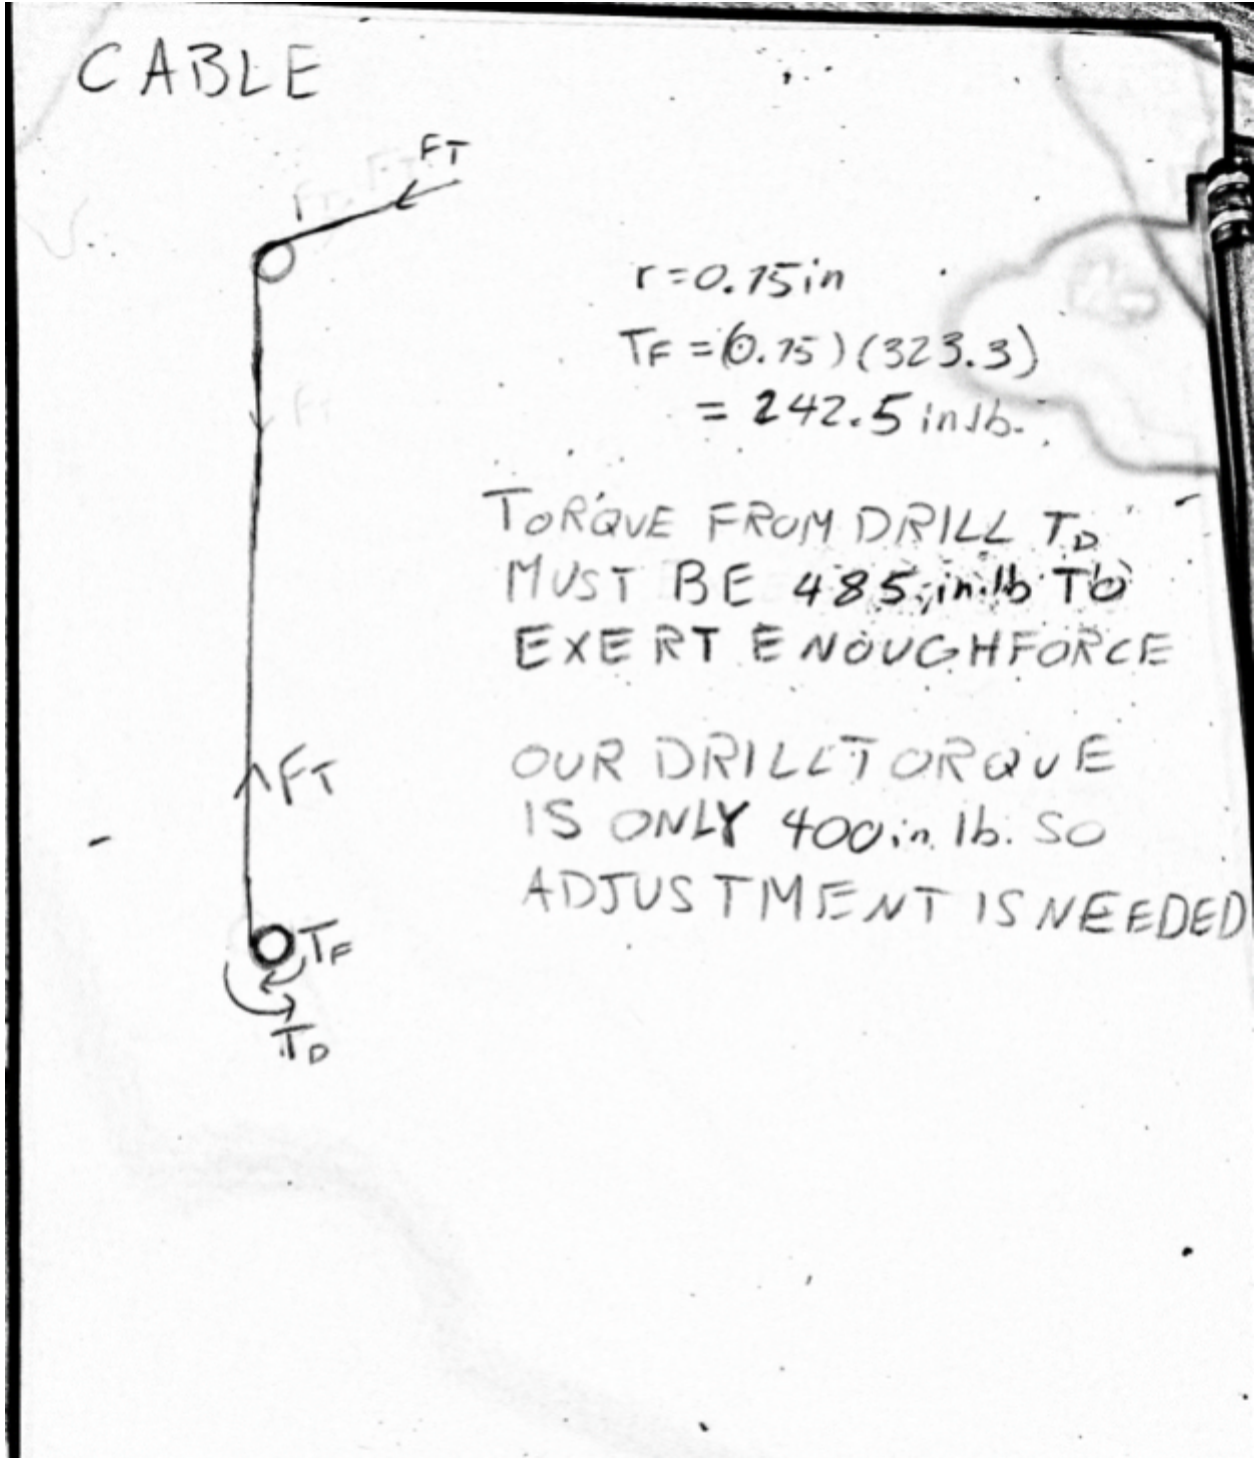 CABLE
FT
r=0.75in
TF =(0.75)(323.3)
= 242.5 in lb.
TORQUE FROM DRILL TD
MUST BE 485 in.lb TO
EXERT ENOUGH FORCE
FT
OUR DRILL TORQUE
IS ONLY 400 in. lb. SO
ADJUSTMENT IS NEEDED
TF
TD